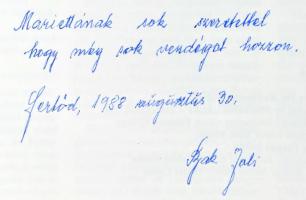 Mariettának sok szeretettel
hogy még sok vendéget hozzon.
Fertőd, 1988 augusztus 30.
Bak Joli